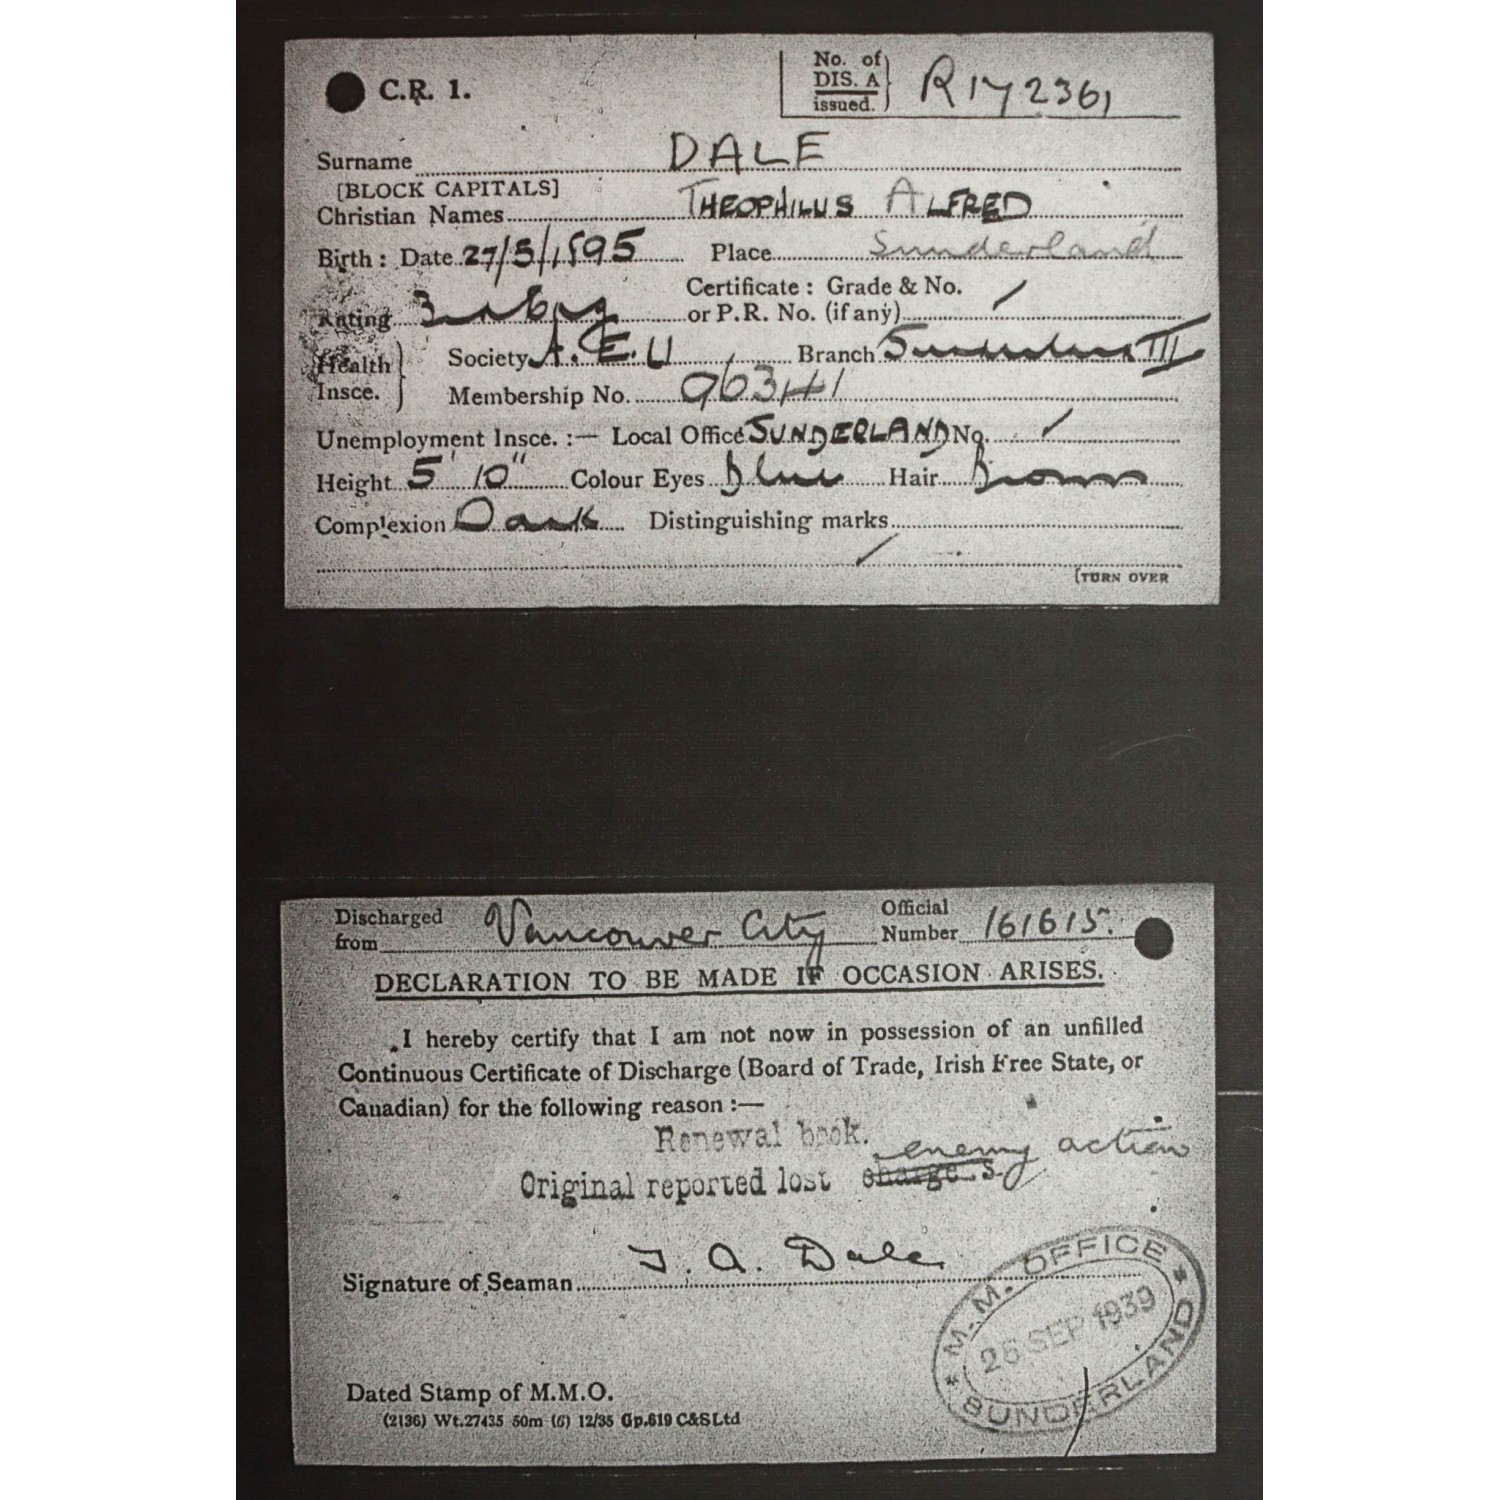 C.R. 1.
No. of DIS. A issued. R172361
Surname DALE
[BLOCK CAPITALS]
Christian Names THEOPHILUS ALFRED
Birth : Date 27/5/1895 Place Sunderland
Certificate : Grade & No.
Rating or P.R. No. (if any) /
Health Insce. Society A.E.U Branch Sunderland III
Membership No. 96341
Unemployment Insce. :— Local Office SUNDERLAND No. /
Height 5' 10" Colour Eyes Blue Hair Brown
Complexion Dark Distinguishing marks
/
[TURN OVER
Discharged from Vancouver City Official Number 161615.
DECLARATION TO BE MADE IF OCCASION ARISES.
I hereby certify that I am not now in possession of an unfilled
Continuous Certificate of Discharge (Board of Trade, Irish Free State, or
Canadian) for the following reason :—
Renewal book.
enemy action
Original reported lost charge s.
Signature of Seaman T. A. Dale
M.M. OFFICE
26 SEP 1939
SUNDERLAND
Dated Stamp of M.M.O.
(2136) Wt.27435 50m (6) 12/35 Gp.619 C&S Ltd